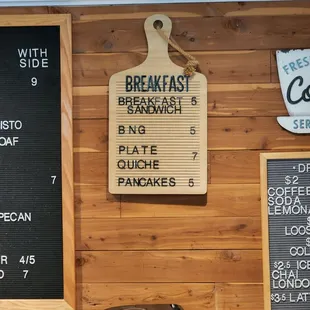 WITH
SIDE
9
ISTO
OAF
7
PECAN
R 4/5
D 7
BREAKFAST
BREAKFAST 5
SANDWICH
BNG 5
PLATE
QUICHE 7
PANCAKES 5
FRES
Co
SER
$2
COFFEE
SODA
LEMONA
LOOS
$
COL
$2.5 ICE
CHAI
LONDO
$3.5 LATT